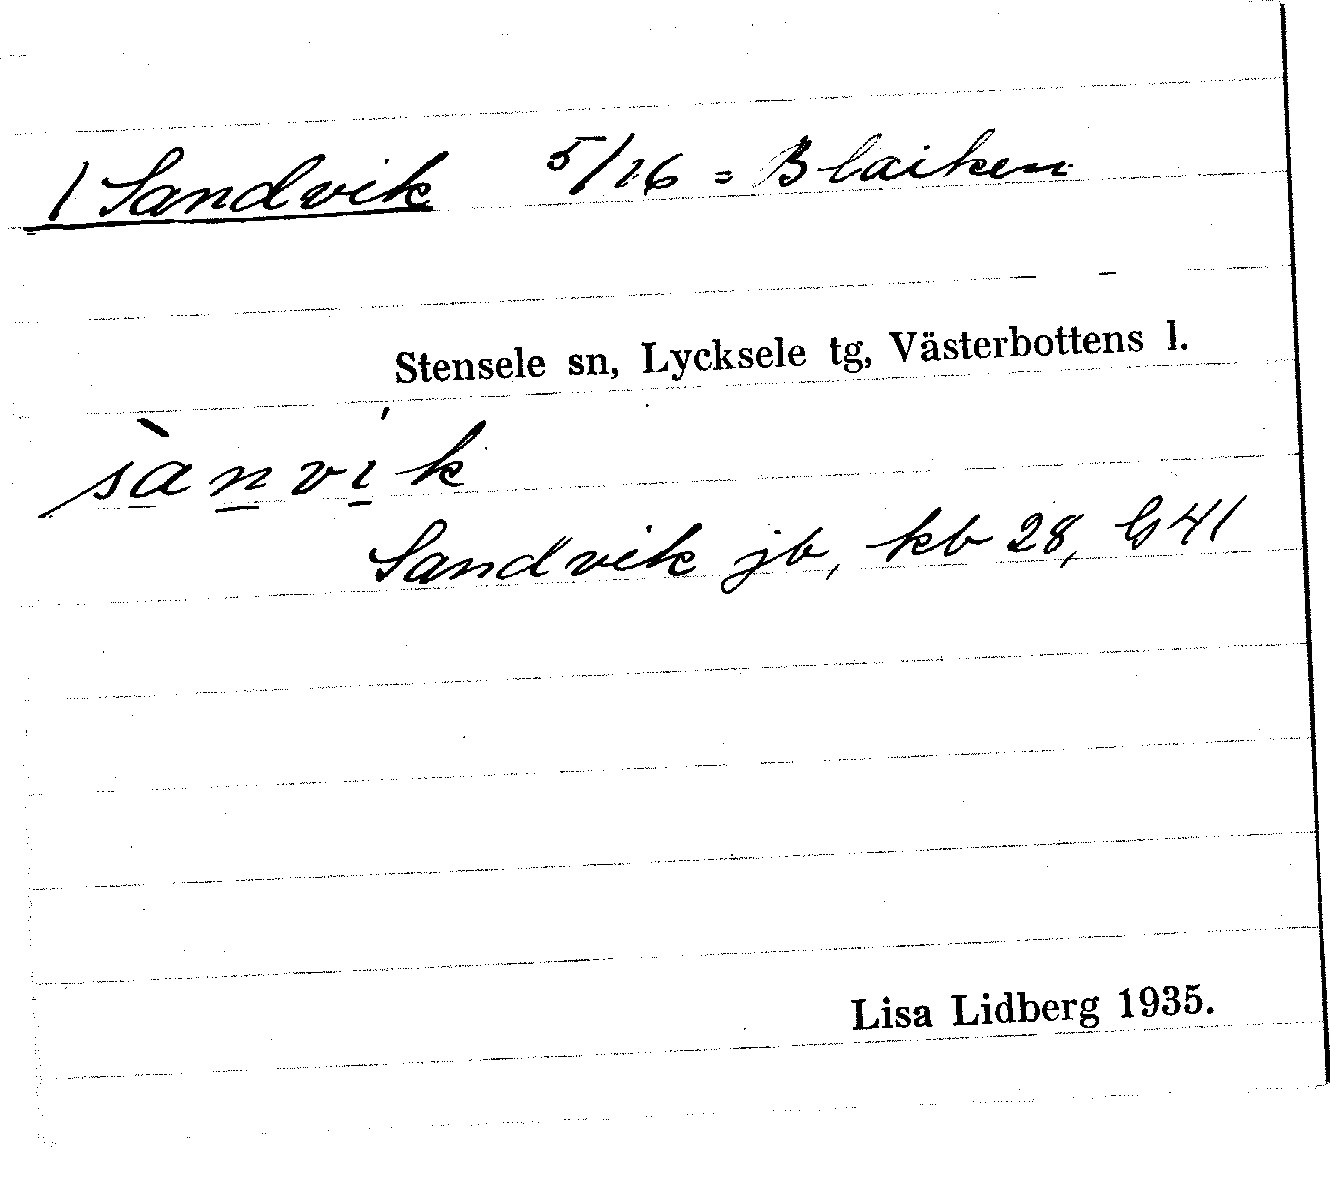 / Sandvik 5/16 = Blaiken
Stensele sn, Lycksele tg, Västerbottens l.
sànvík
Sandvik jb, kb 28, G 41
Lisa Lidberg 1935.